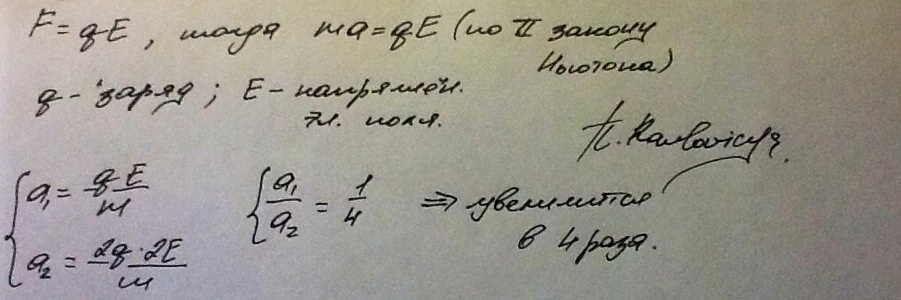 F = qE, тогда ma = qE (по II закону
Ньютона)
q - заряд; E - напряжён.
эл. поля.
a₁ = qE/m
a₂ = 2q·2E/m
a₁/a₂ = 1/4 ⇒ увеличится
в 4 раза.